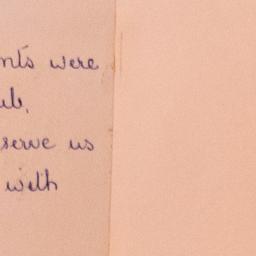 nts were
ub.
serve us
with